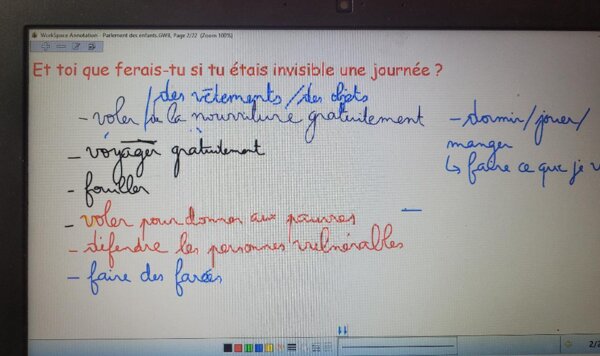 WorkSpace Annotation - Parlement des enfants.GWB, Page 2/22 (Zoom 100%)
Et toi que ferais-tu si tu étais invisible une journée ?
/des vêtements/des objets
- voler de la nourriture gratuitement
- voyager gratuitement
- fouiller
- voler pour donner aux pauvres
- défendre les personnes vulnérables
- faire des farces
- dormir/jouer/
manger
↳ faire ce que je v
2/2